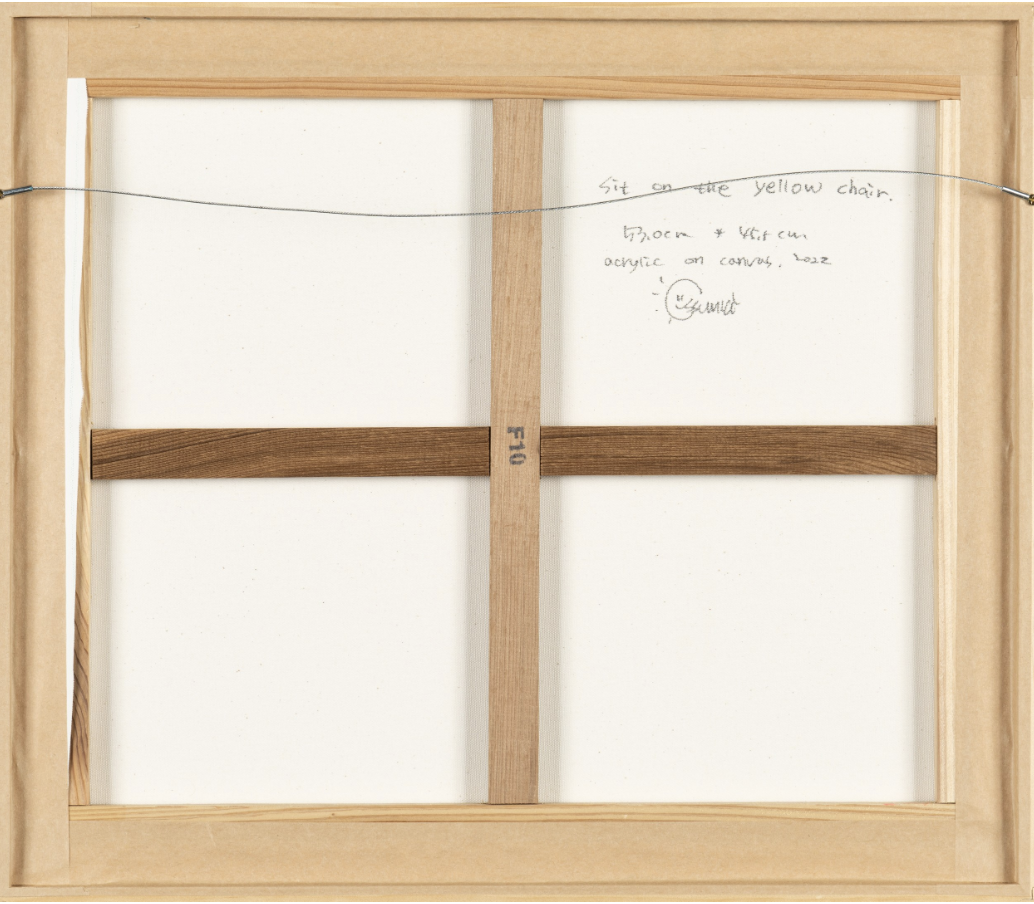 Sit on the yellow chair.
53.0cm * 45.5 cm
acrylic on canvas. 2022
F10